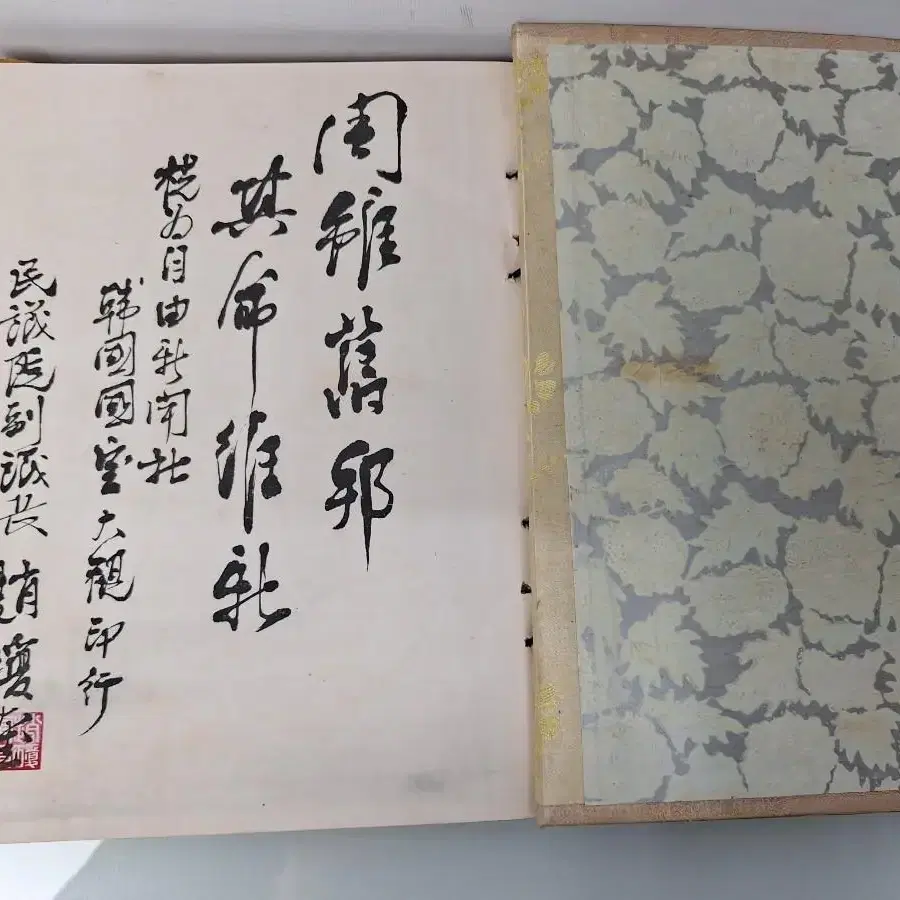 周雖舊邦
其命維新
为自由新聞社
韓國國宝大觀印行
民議院副議長 趙瓊